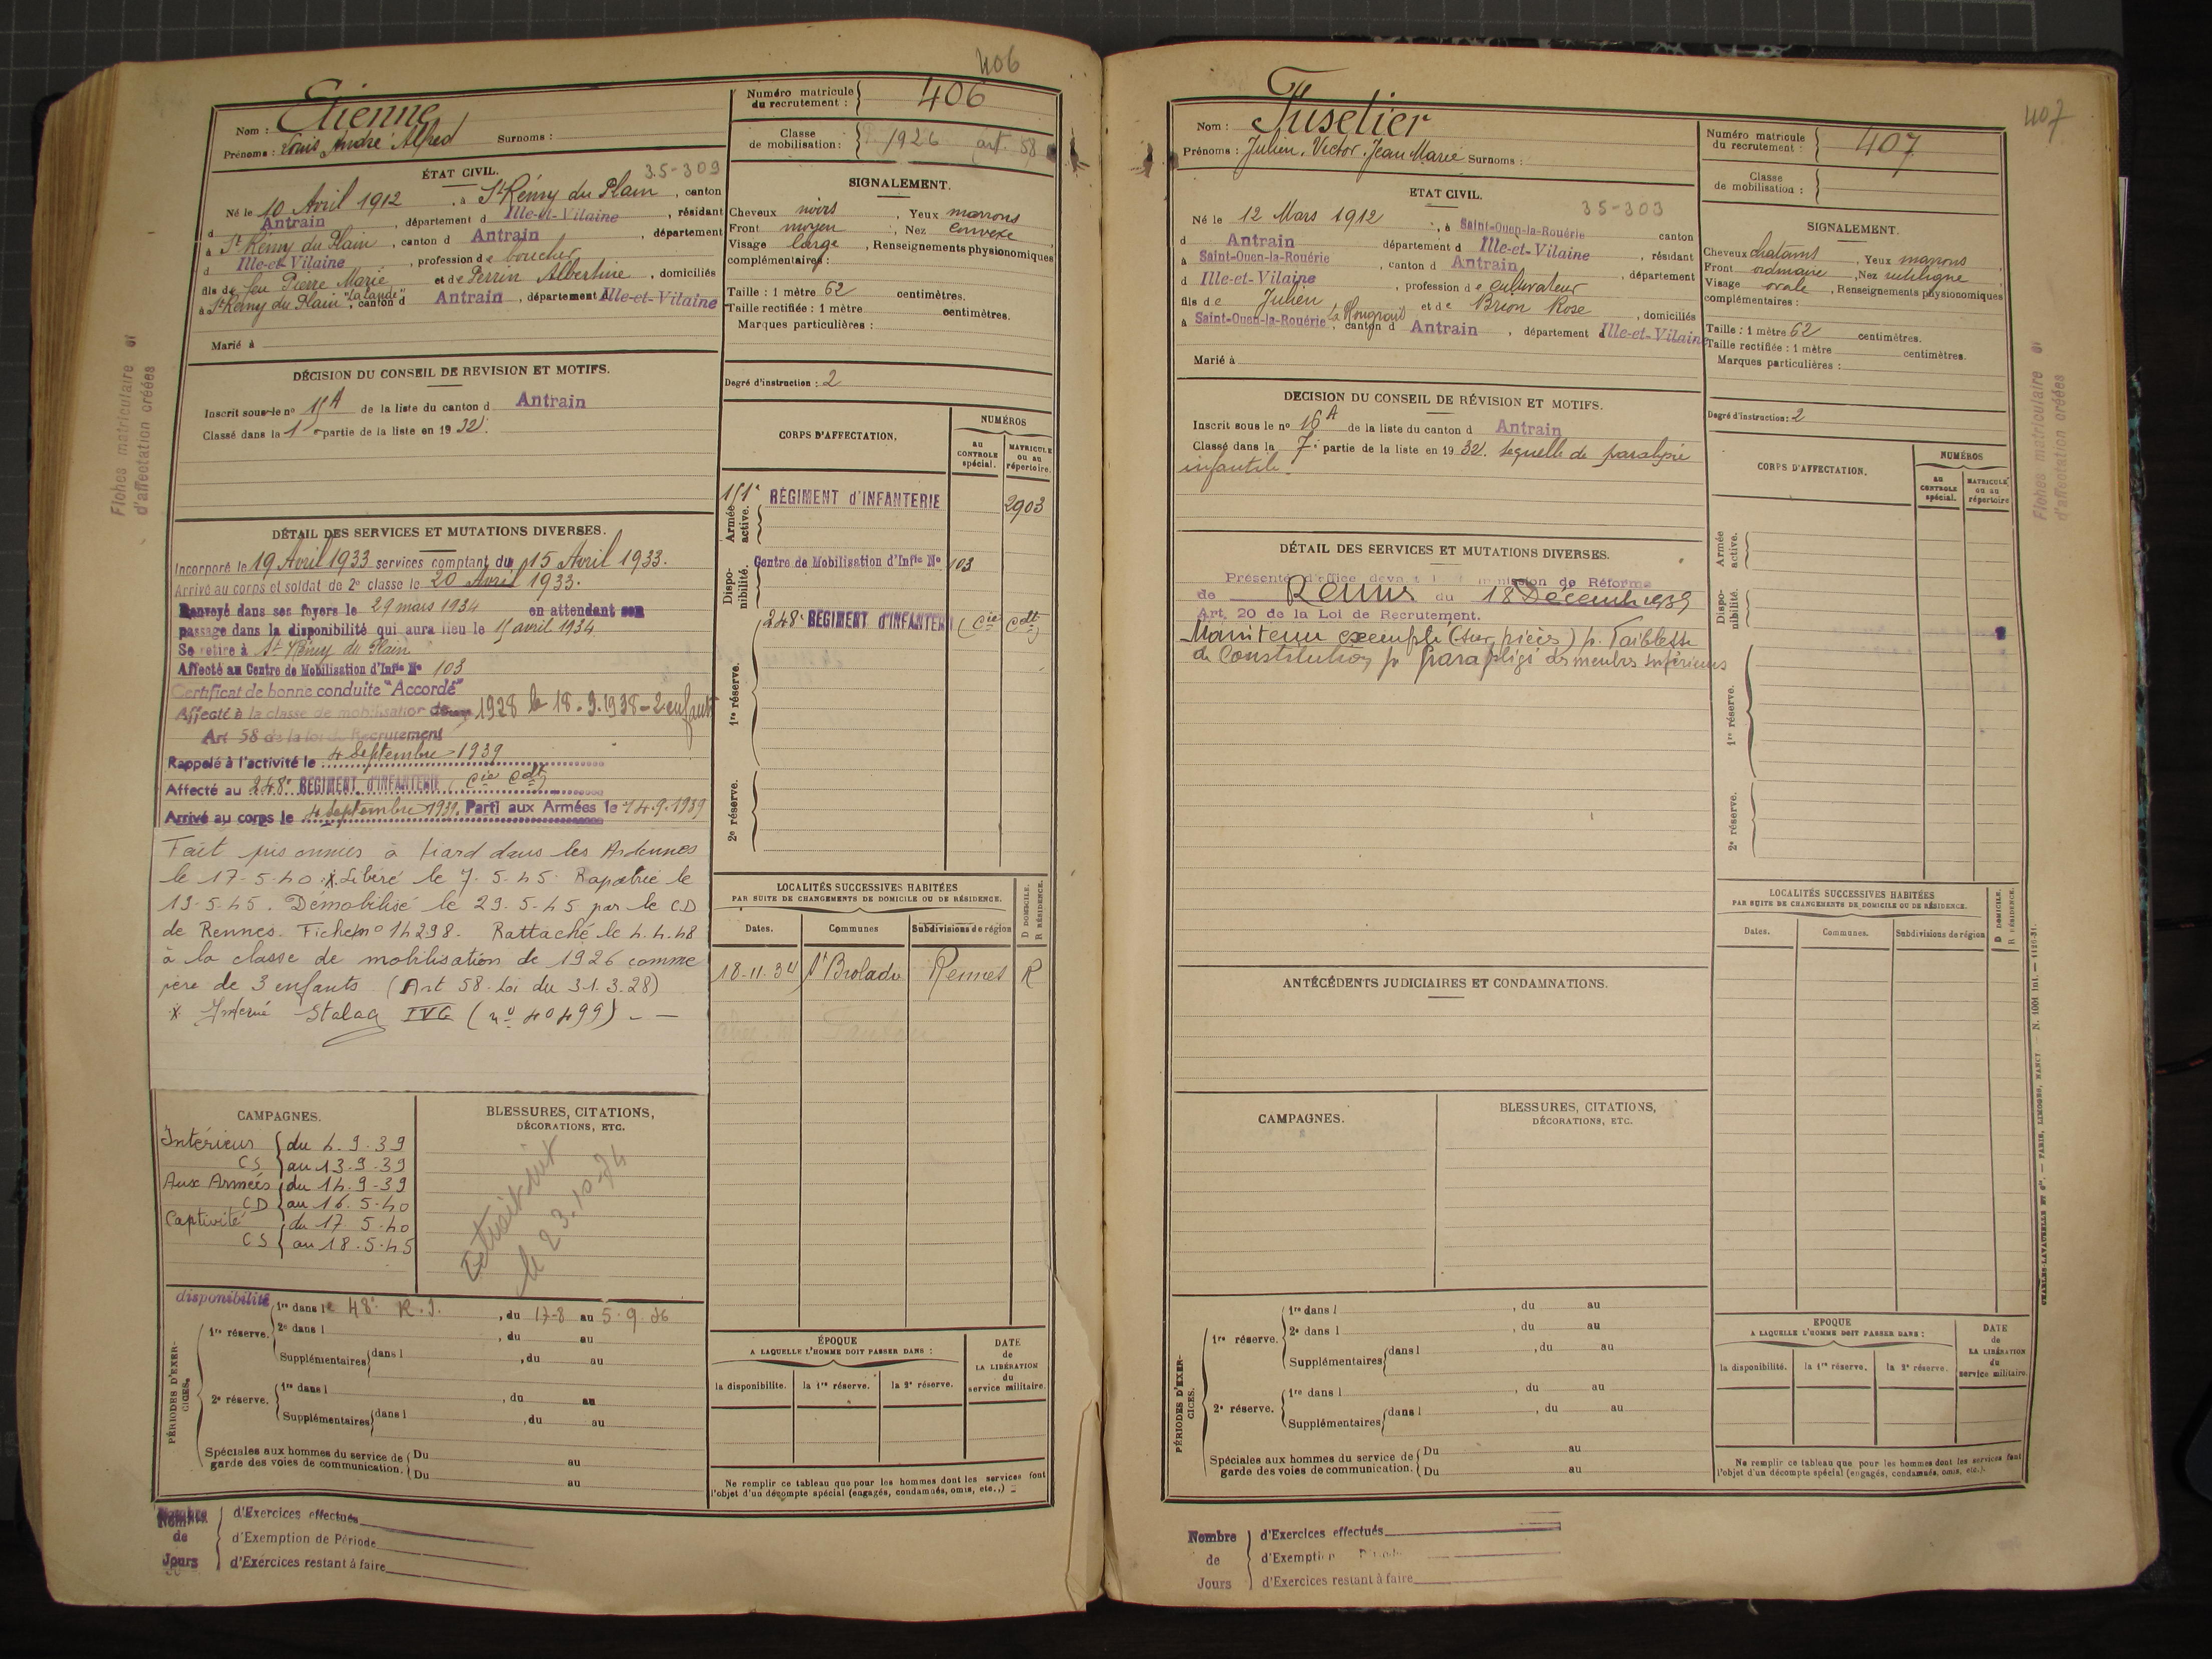 406
Nom : Etienne
Prénoms : Louis André Alfred Surnoms :
Numéro matricule du recrutement : 406
Classe de mobilisation : 1926 art. 58
ÉTAT CIVIL. 35-309
Né le 10 Avril 1912, à St Rémy du Plain, canton
d Antrain, département d Ille-et-Vilaine, résidant
à St Rémy du Plain, canton d Antrain, département
d Ille-et-Vilaine, profession de boucher
fils de feu Pierre Marie et de Perrin Albertine, domiciliés
à St Rémy du Plain "la Lande", canton d Antrain, département d Ille-et-Vilaine
Marié à
SIGNALEMENT.
Cheveux noirs, Yeux marrons
Front moyen, Nez convexe
Visage large, Renseignements physionomiques
complémentaires :
Taille : 1 mètre 62 centimètres.
Taille rectifiée : 1 mètre centimètres.
Marques particulières :
Degré d'instruction : 2
DÉCISION DU CONSEIL DE REVISION ET MOTIFS.
Inscrit sous le n° 15A de la liste du canton d Antrain
Classé dans la 1re partie de la liste en 1932.
Fiches matriculaire et
d'affectation créées
DÉTAIL DES SERVICES ET MUTATIONS DIVERSES.
Incorporé le 19 Avril 1933 services comptant du 15 Avril 1933.
Arrivé au corps et soldat de 2e classe le 20 Avril 1933.
Renvoyé dans ses foyers le 29 mars 1934 en attendant son
passage dans la disponibilité qui aura lieu le 15 avril 1934
Se retire à St Rémy du Plain
Affecté au Centre de Mobilisation d'Infie N° 103
Certificat de bonne conduite "Accordé"
Affecté à la classe de mobilisation de 1928 le 18.9.1938 - 2 enfants
Art 58 de la loi du Recrutement
Rappelé à l'activité le 4 Septembre 1939
Affecté au 248e RÉGIMENT D'INFANTERIE (Cie Cdt)
Arrivé au corps le 4 Septembre 1939. Parti aux Armées le 14.9.1939
Fait prisonnier à Liard dans les Ardennes
le 17.5.40 x Libéré le 7.5.45. Rapatrié le
19.5.45. Démobilisé le 29.5.45 par le CD
de Rennes. Fiche n° 14298. Rattaché le 4.4.48
à la classe de mobilisation de 1926 comme
père de 3 enfants (Art 58. Loi du 31.3.28)
x Interné Stalag IVG (n° 40499) - -
CORPS D'AFFECTATION.
NUMÉROS
AU CONTROLE spécial.
MATRICULE ou au répertoire.
Armée active. 151e RÉGIMENT d'INFANTERIE 2903
Disponibilité. Centre de Mobilisation d'Infie N° 103
1re réserve. 248e RÉGIMENT D'INFANTERIE (Cie Cdt)
2e réserve.
LOCALITÉS SUCCESSIVES HABITÉES
PAR SUITE DE CHANGEMENTS DE DOMICILE OU DE RÉSIDENCE.
D DOMICILE. R RÉSIDENCE.
Dates. Communes Subdivisions de région
18-11-34 St Broladre Rennes R
CAMPAGNES.
Intérieur CS { du 4.9.39
au 13.9.39
Aux Armées CD { du 14.9.39
au 16.5.40
Captivité CS { du 17.5.40
au 18.5.45
BLESSURES, CITATIONS,
DÉCORATIONS, ETC.
PÉRIODES D'EXERCICES.
disponibilité
1re réserve. 1re dans le 48e R.I., du 17-8 au 5.9.36
2e dans l , du au
Supplémentaires dans l , du au
2e réserve. 1re dans l , du au
Supplémentaires dans l , du au
Spéciales aux hommes du service de garde des voies de communication. Du au
Du au
ÉPOQUE
A LAQUELLE L'HOMME DOIT PASSER DANS :
la disponibilité. la 1re réserve. la 2e réserve.
DATE de LA LIBÉRATION du service militaire.
Ne remplir ce tableau que pour les hommes dont les services font
l'objet d'un décompte spécial (engagés, condamnés, omis, etc.,)
Nombre de Jours
d'Exercices effectués
d'Exemption de Période
d'Exercices restant à faire
407
Nom : Fuselier
Prénoms : Julien, Victor, Jean Marie Surnoms :
Numéro matricule du recrutement : 407
Classe de mobilisation :
ETAT CIVIL.
35-303
Né le 12 Mars 1912, à Saint-Ouen-la-Rouërie canton
d Antrain département d Ille-et-Vilaine, résidant
à Saint-Ouen-la-Rouërie, canton d Antrain, département
d Ille-et-Vilaine, profession de cultivateur
fils de Julien et de Brion Rose, domiciliés
à Saint-Ouen-la-Rouërie, canton d Antrain, département d Ille-et-Vilaine
Marié à
SIGNALEMENT.
Cheveux chatains, Yeux marrons
Front ordinaire, Nez rectiligne
Visage ovale, Renseignements physionomiques
complémentaires :
Taille : 1 mètre 62 centimètres.
Taille rectifiée : 1 mètre centimètres.
Marques particulières :
Degré d'instruction : 2
DECISION DU CONSEIL DE RÉVISION ET MOTIFS.
Inscrit sous le n° 16A de la liste du canton d Antrain
Classé dans la 7e partie de la liste en 1932. Sequelle de paralysie
infantile.
Fiches matriculaire et
d'affectation créées
DÉTAIL DES SERVICES ET MUTATIONS DIVERSES.
Présenté d'office devant la Commission de Réforme
de Rennes du 18 Décembre 1939
Art. 20 de la Loi de Recrutement.
Maintenu exempté (sur pièces) p. Faiblesse
de Constitution p. paraplégie des membres inférieurs
CORPS D'AFFECTATION.
NUMÉROS
AU CONTROLE spécial.
MATRICULE ou au répertoire
Armée active.
Disponibilité.
1re réserve.
2e réserve.
LOCALITÉS SUCCESSIVES HABITÉES
PAR SUITE DE CHANGEMENTS DE DOMICILE OU DE RÉSIDENCE.
D DOMICILE. R RÉSIDENCE.
Dates. Communes. Subdivisions de région
ANTÉCÉDENTS JUDICIAIRES ET CONDAMNATIONS.
CAMPAGNES.
BLESSURES, CITATIONS,
DÉCORATIONS, ETC.
PÉRIODES D'EXERCICES.
1re réserve. 1re dans l , du au
2e dans l , du au
Supplémentaires dans l , du au
2e réserve. 1re dans l , du au
Supplémentaires dans l , du au
Spéciales aux hommes du service de garde des voies de communication. Du au
Du au
EPOQUE
A LAQUELLE L'HOMME DOIT PASSER DANS :
la disponibilité. la 1re réserve. la 2e réserve.
DATE de LA LIBÉRATION du service militaire.
Ne remplir ce tableau que pour les hommes dont les services font
l'objet d'un décompte spécial (engagés, condamnés, omis, etc.).
CHARLES-LAVAUZELLE ET Cie. — PARIS, LIMOGES, NANCY
Nombre de Jours
d'Exercices effectués
d'Exemption
d'Exercices restant à faire